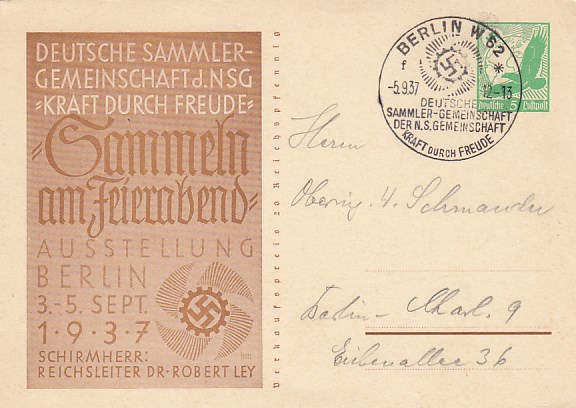 DEUTSCHE SAMMLER-
GEMEINSCHAFT d. NSG
"KRAFT DURCH FREUDE"
"Sammeln
am Feierabend"
AUSSTELLUNG
BERLIN
3.-5. SEPT.
1·9·3·7
SCHIRMHERR:
REICHSLEITER DR·ROBERT LEY
Verkaufspreis 20 Reichspfennig
BERLIN W 62
f *
-5.9.37 12-13
DEUTSCHE
SAMMLER-GEMEINSCHAFT
DER N.S. GEMEINSCHAFT
KRAFT DURCH FREUDE
Deutsche 5 Luftpost
Herrn
Obering. H. Schmander
Berlin-Charl. 9
Eichenallee 36